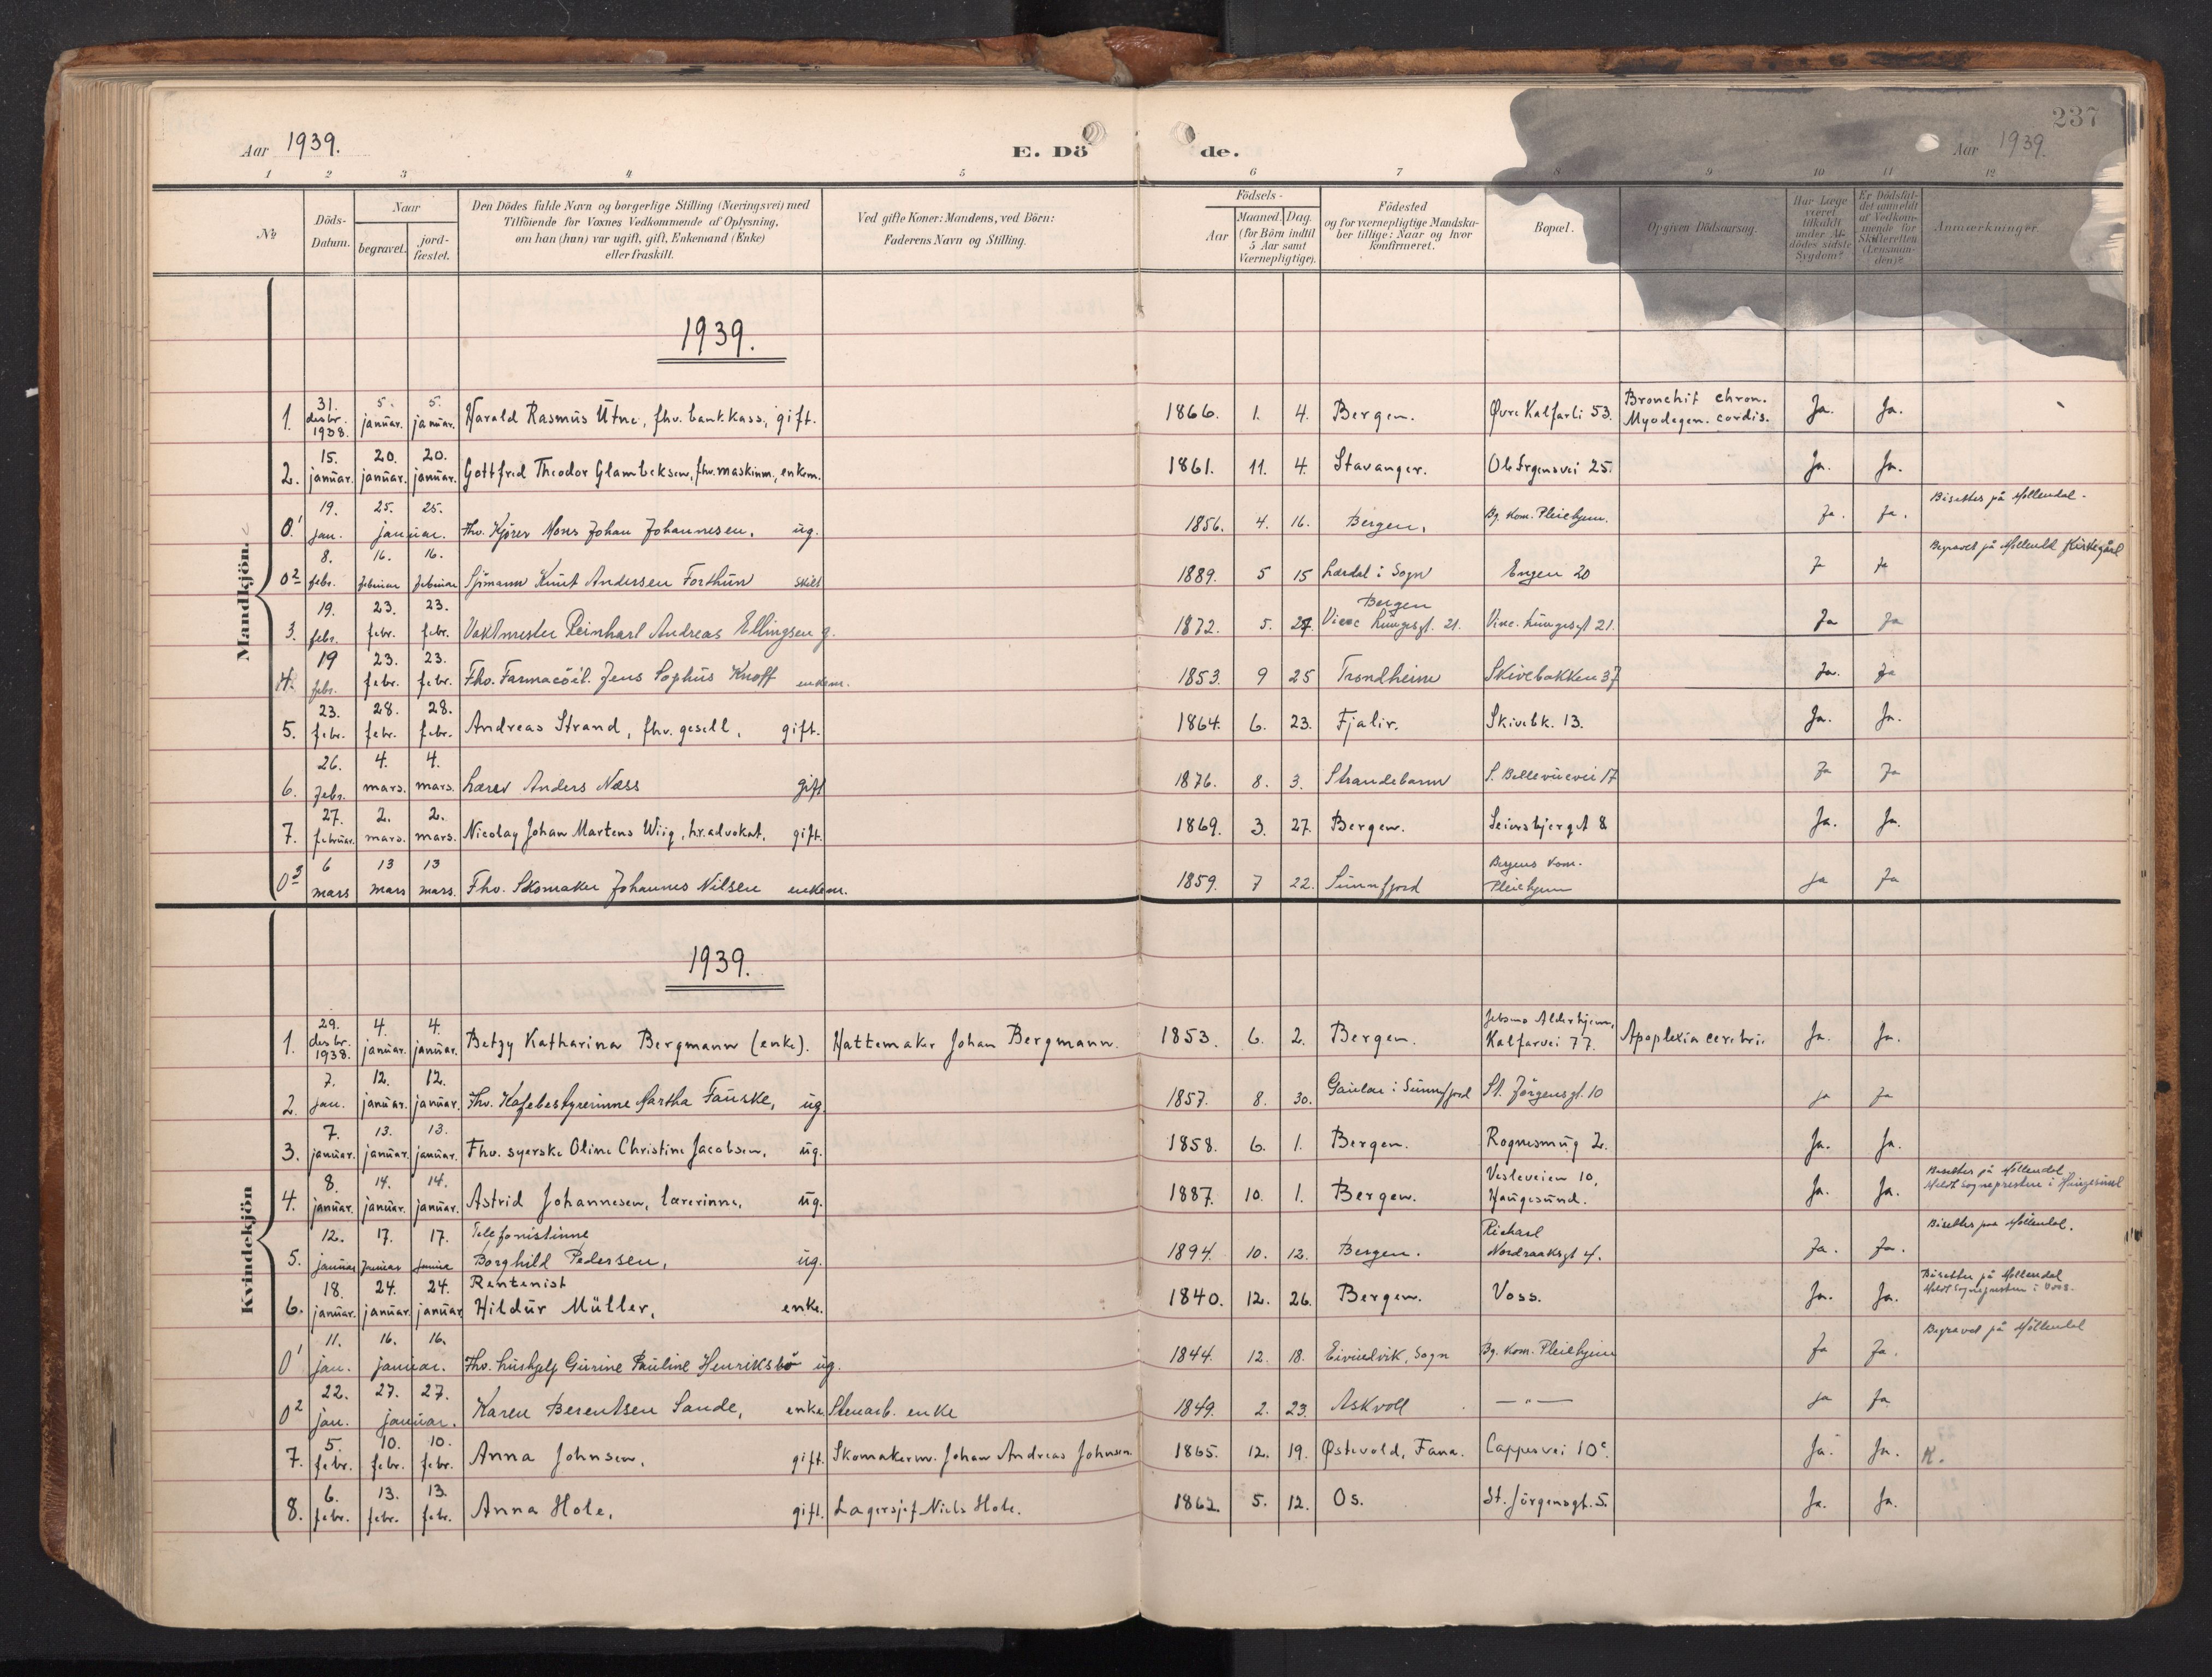 237
Aar 1939.
E. Dö de.
Aar 1939.
1 2 3 4 5 6 7 8 9 10 11 12
№
Döds-Datum.
Naar
begravet. jord-fæstet.
Den Dödes fulde Navn og borgerlige Stilling (Næringsvei) med
Tilföiende for Voxnes Vedkommende af Oplysning,
om han (hun) var ugift, gift, Enkemand (Enke)
eller fraskilt.
Ved gifte Koner: Mandens, ved Börn:
Faderens Navn og Stilling.
Födsels-
Aar Maaned. Dag.
(for Börn indtil
5 Aar samt
Værnepligtige).
Födested
og for værnepligtige Mandska-
ber tillige: Naar og hvor
konfirmeret.
Bopæl.
Opgiven Dödsaarsag.
Har Læge
været
tilkaldt
under Af-
dödes sidste
Sygdom?
Er Dödsfal-
det anmeldt
af Vedkom-
mende for
Skifteretten
(Lensman-
den)?
Anmærkninger.
Mandkjön.
1939.
1. 31. desbr. 1938. 5. januar. 5. januar. Harald Rasmus Utne, fhv. bank.kass, gift. 1866. 1. 4. Bergen. Øvre Kalfarli 53. Bronchit chron. Myodegen. cordis. Ja. Ja.
2. 15. januar. 20. januar. 20. januar. Gottfred Theodor Glambeksen, fhv. maskinm., enkem. 1861. 11. 4. Stavanger. 25. Ja. Ja.
0 1 19. jan. 25. 25. januar. Fhv. Kjører Mons Johan Johannesen, ug. 1856. 4. 16. Bergen. Bg. Kom. Pleiehjem. Ja. Ja. Bisettes på Møllendal.
0 2 8. febr. 16. februar 16. februar Sjømann Knut Andersen Forthun skilt 1889. 5 15 Lærdal i Sogn Engen 20 Ja Ja Begravet på Møllendal Kirkegård
3. 19. febr. 23. febr. 23. febr. Vaktmester Reinhart Andreas Ellingsen g. 1872. 5. 27. Bergen Vinc. Lungesgt. 21. Vinc. Lungesgt 21. Ja Ja
4. 19 febr. 23. febr. 23. febr. Fhv. Farmacöit. Jens Sophus Knoff enkem. 1853. 9 25 Trondheim Skivebakken 37 Ja. Ja
5. 23. febr. 28. febr. 28. febr. Andreas Strand, fhv. gesell, gift. 1864. 6. 23. Fjalir. Skivebk. 13. Ja. Ja.
6. 26. febr. 4. mars. 4. mars. Lærer Anders Næss gift 1876. 8. 3. Strandebarm S. Bellevuevei 17 Ja Ja
7. 27. februar. 2. mars. 2. mars. Nicolay Johan Martens Wiig, hr.advokat, gift. 1869. 3. 27. Bergen. Seiersbjerget 8 Ja. Ja.
0 3 6 mars 13 mars 13 mars. Fhv. Skomaker Johannes Nilsen enkem. 1859. 7 22. Sunnfjord Bergens Kom. Pleiehjem Ja Ja
Kvindekjön
1939.
1. 29. desbr. 1938. 4. januar. 4. januar. Betzy Katharina Bergmann (enke). Hattemaker Johan Bergmann. 1853. 6. 2. Bergen. Jebsens Alderhjem, Kalfarvei 77. Apoplexia cerebri. Ja. Ja.
2. 7. jan. 12. januar. 12. januar. Fhv. Kafebestyrerinne Martha Fauske, ug. 1857. 8. 30. Gaular i Sunnfjord St. Jörgensgt. 10 Ja Ja
3. 7. januar. 13. januar. 13. januar. Fhv. syerske Oline Christine Jacobsen, ug. 1858. 6. 1. Bergen. Rognesmug 2. Ja. Ja.
4. 8. januar. 14. januar. 14. januar. Astrid Johannesen, lærerinne, ug. 1887. 10. 1. Bergen. Vesleveien 10, Haugesund. Ja. Ja. Bisettes på Møllendal Meldt sognepresten i Haugesund
5. 12. januar 17. januar 17. januar Telefonistinne Borghild Pedersen, ug. 1894. 10. 12. Bergen. Richard Nordraaksgt 4. Ja. Ja. Bisettes paa Møllendal.
6. 18. januar. 24. januar. 24. januar Rentenist Hildur Müller, enke. 1840. 12. 26. Bergen. Voss. Ja. Ja. Bisettes på Møllendal Meldt sognepresten i Voss.
0 1 11. jan. 16. 16. januar. Fhv. hushjelp Gurine Pauline Henriksbø ug. 1844. 12. 18. Eivindvik, Sogn Bg. Kom. Pleiehjem Ja Ja. Begravet på Møllendal
0 2 22. jan. 27. 27. januar. Karen Berentsen Sande, enke. Stenarb. enke 1849. 2. 23. Askvoll — " — Ja Ja
7. 5. febr. 10. febr. 10. febr. Anna Johnsen, gift. Skomakerm. Johan Andreas Johnsen. 1865. 12. 19. Østevold, Fana. Cappesvei 10c. Ja. Ja. K.
8. 6. febr. 13. febr. 13. febr. Anna Hole, gift. Lagersjef Niels Hole. 1862. 5. 12. Os. St. Jörgensgt. 5. Ja. Ja.